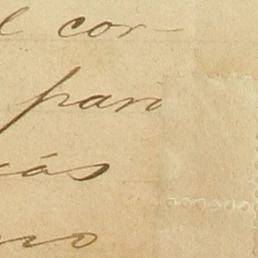 l cor-
para
ás
no